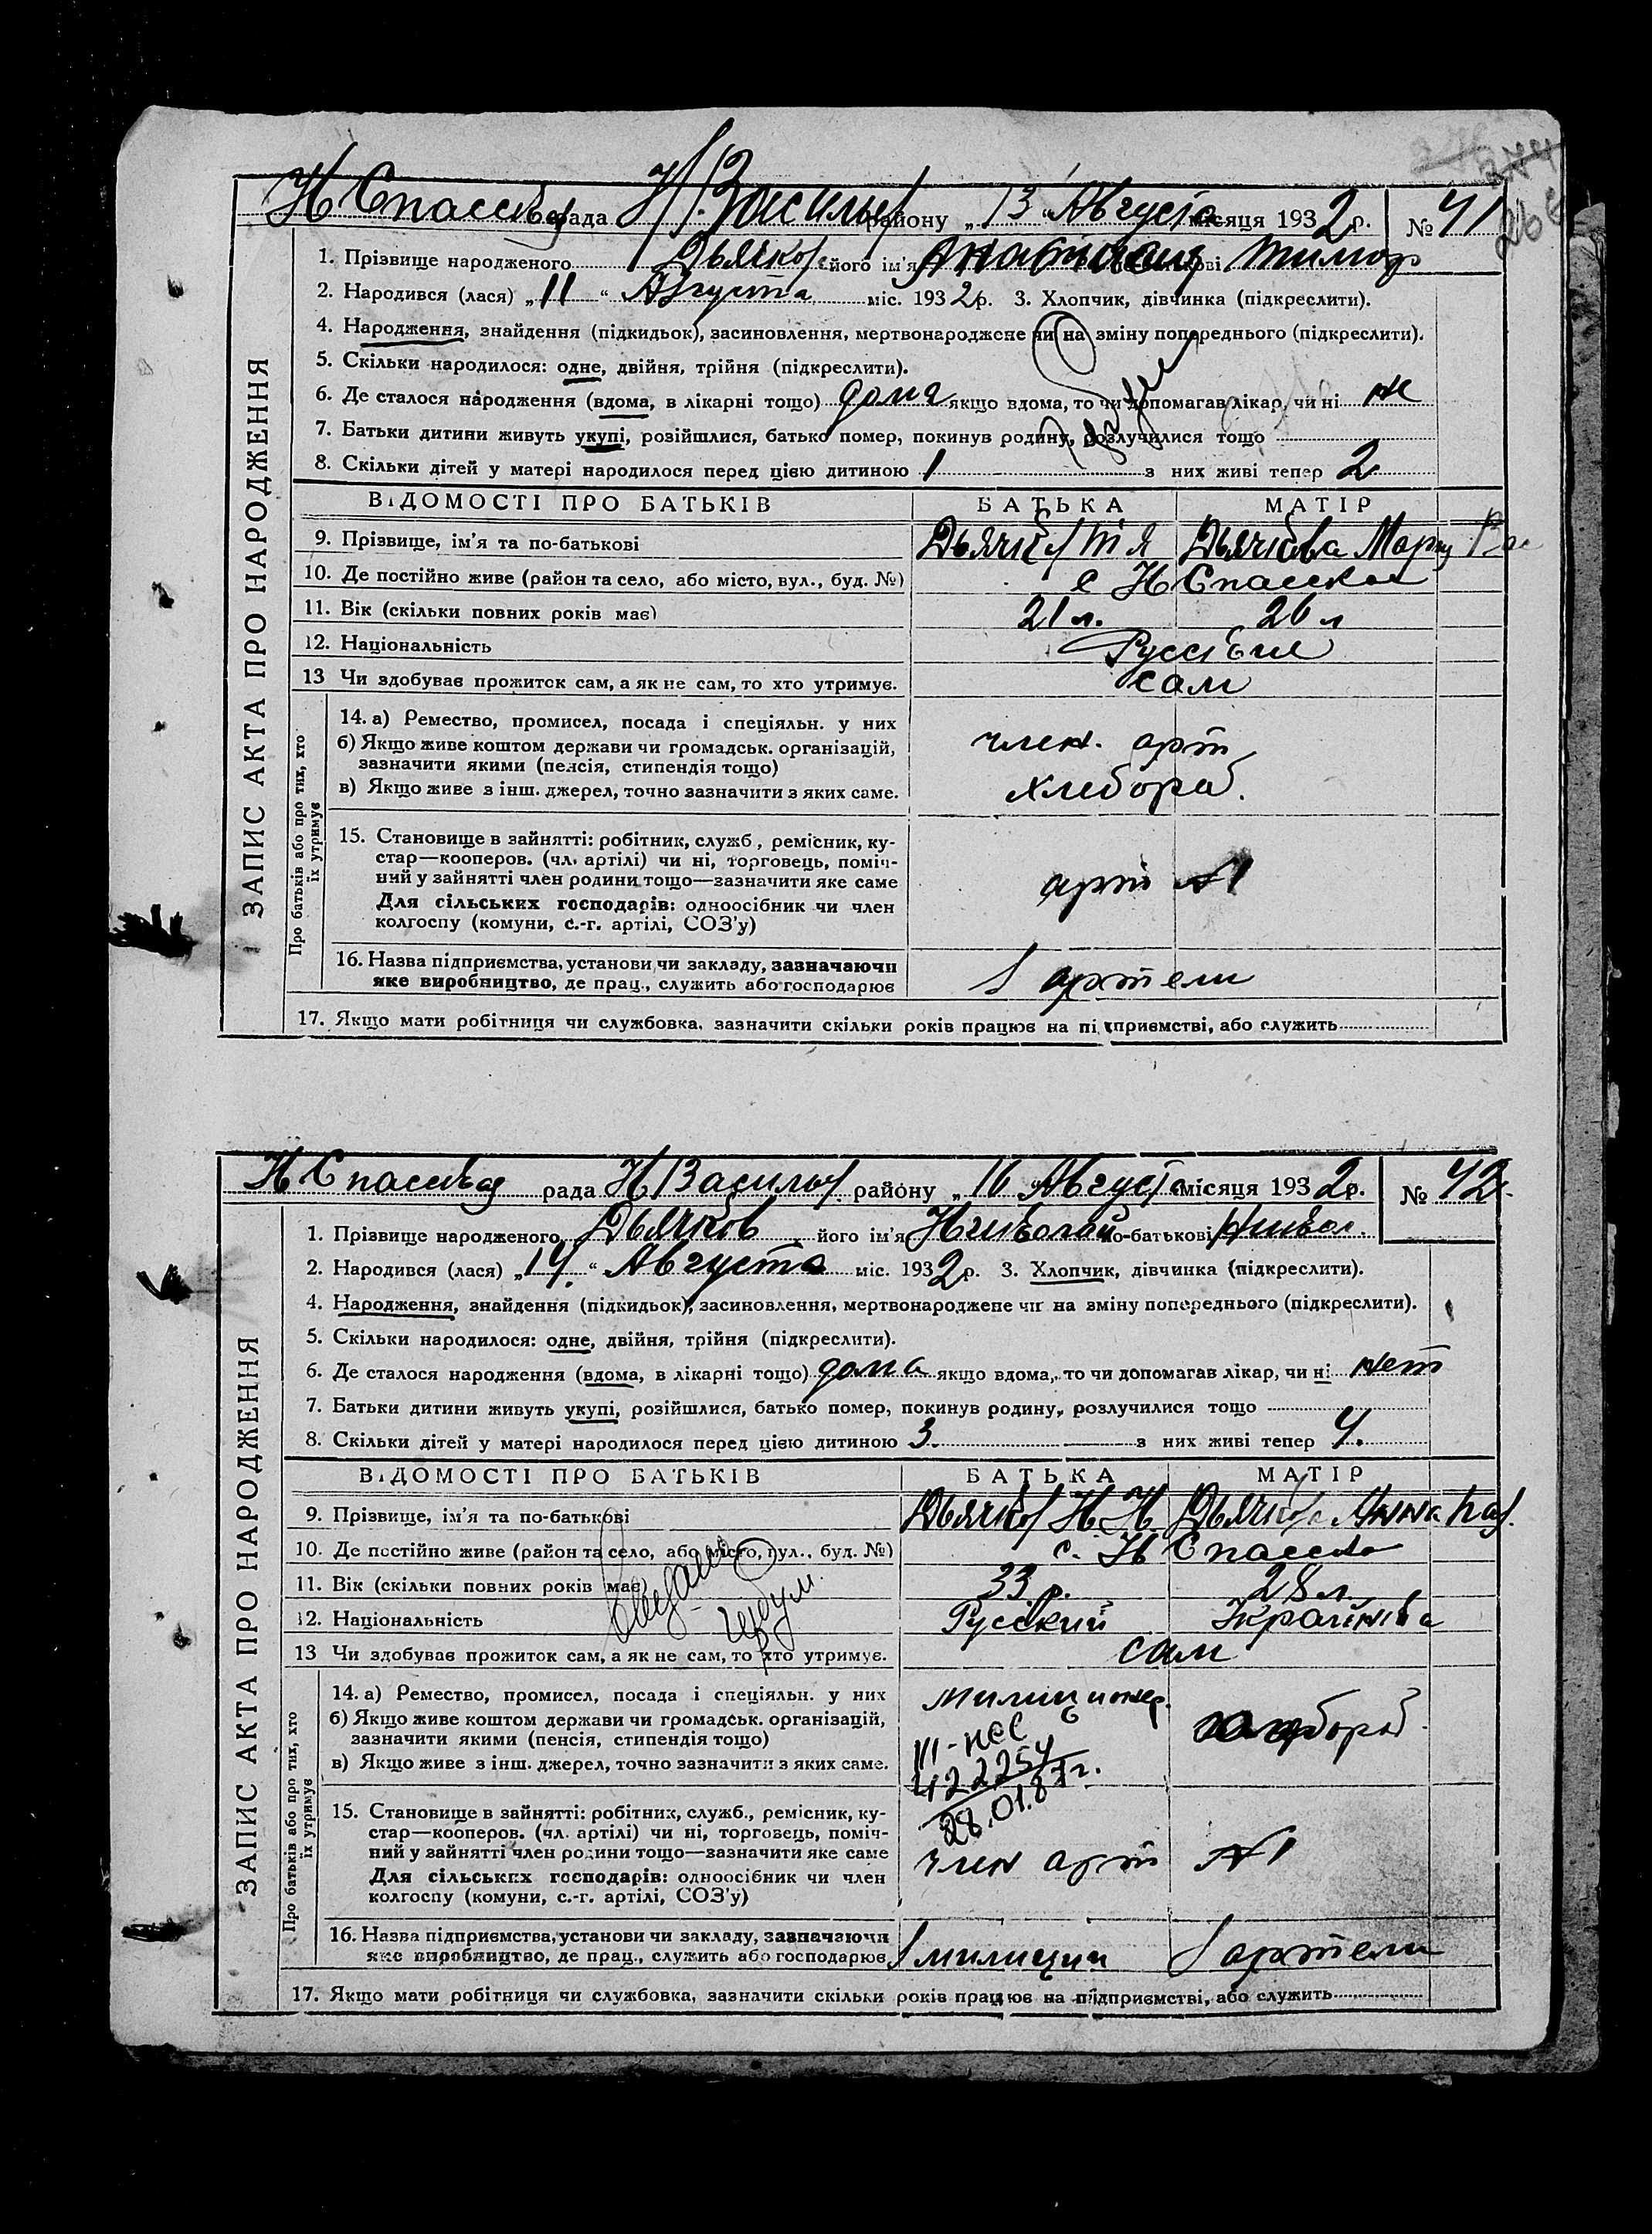 Н Спасская рада Н. Василье району „ 13 “ Августа місяця 1932 р. № 41
1. Прізвище народженого Дьячков його ім'я по-батькові Тимоф
2. Народився (лася) „ 11 “ Августа міс. 1932 р. 3. Хлопчик, дівчинка (підкреслити).
4. Народження, знайдення (підкидьок), засиновлення, мертвонароджене чи на зміну попереднього (підкреслити).
5. Скільки народилося: одне, двійня, трійня (підкреслити).
6. Де сталося народження (вдома, в лікарні тощо) дома якщо вдома, то чи допомагав лікар, чи ні не
7. Батьки дитини живуть укупі, розійшлися, батько помер, покинув родину, розлучилися тощо
8. Скільки дітей у матері народилося перед цією дитиною 1 з них живі тепер 2
ЗАПИС АКТА ПРО НАРОДЖЕННЯ
ВІДОМОСТІ ПРО БАТЬКІВ БАТЬКА МАТІР
9. Прізвище, ім'я та по-батькові Дьячков Т Я Дьячкова Мария
10. Де постійно живе (район та село, або місто, вул., буд. №) с Н Спасское
11. Вік (скільки повних років має) 21 л. 26 л
12. Національність Русские
13 Чи здобуває прожиток сам, а як не сам, то хто утримує. сам
Про батьків або про тих, хто їх утримує
14. а) Ремество, промисел, посада і спеціяльн. у них
б) Якщо живе коштом держави чи громадськ. організацій, член. арт
зазначити якими (пенсія, стипендія тощо)
в) Якщо живе з інш. джерел, точно зазначити з яких саме. хлебороб.
15. Становище в зайнятті: робітник, служб., ремісник, ку-
стар—кооперов. (чл. артілі) чи ні, торговець, поміч-
ний у зайнятті член родини тощо—зазначити яке саме арт №1
Для сільських господарів: одноосібник чи член
колгоспу (комуни, с.-г. артілі, СОЗ'у)
16. Назва підприємства, установи чи закладу, зазначаючи
яке виробництво, де прац., служить або господарює в артели
17. Якщо мати робітниця чи службовка, зазначити скільки років працює на підприємстві, або служить
Н Спасская рада Н Василье району „ 16 “ Августа місяця 1932 р. № 42
1. Прізвище народженого Дьячков його ім'я Николай по-батькові Никол.
2. Народився (лася) „ 14. “ Августа міс. 1932 р. 3. Хлопчик, дівчинка (підкреслити).
4. Народження, знайдення (підкидьок), засиновлення, мертвонароджене чи на зміну попереднього (підкреслити).
5. Скільки народилося: одне, двійня, трійня (підкреслити).
6. Де сталося народження (вдома, в лікарні тощо) дома якщо вдома, то чи допомагав лікар, чи ні нет
7. Батьки дитини живуть укупі, розійшлися, батько помер, покинув родину, розлучилися тощо
8. Скільки дітей у матері народилося перед цією дитиною 3. з них живі тепер 4.
ЗАПИС АКТА ПРО НАРОДЖЕННЯ
ВІДОМОСТІ ПРО БАТЬКІВ БАТЬКА МАТІР
9. Прізвище, ім'я та по-батькові Дьячков Н. Н. Дьячкова Анна Пав.
10. Де постійно живе (район та село, або місто, вул., буд. №) с. Н Спасско
11. Вік (скільки повних років має) 33 р. 28 л.
12. Національність Русский Українка
13 Чи здобуває прожиток сам, а як не сам, то хто утримує. сам
Про батьків або про тих, хто їх утримує
14. а) Ремество, промисел, посада і спеціяльн. у них милиционер.
б) Якщо живе коштом держави чи громадськ. організацій, хлебороб
зазначити якими (пенсія, стипендія тощо) III-НСС
в) Якщо живе з інш. джерел, точно зазначити з яких саме. 422254
28.01.87г.
15. Становище в зайнятті: робітник, служб., ремісник, ку-
стар—кооперов. (чл. артілі) чи ні, торговець, поміч-
ний у зайнятті член родини тощо—зазначити яке саме член арт №1
Для сільських господарів: одноосібник чи член
колгоспу (комуни, с.-г. артілі, СОЗ'у)
16. Назва підприємства, установи чи закладу, зазначаючи
яке виробництво, де прац., служить або господарює в милиции в артели
17. Якщо мати робітниця чи службовка, зазначити скільки років працює на підприємстві, або служить